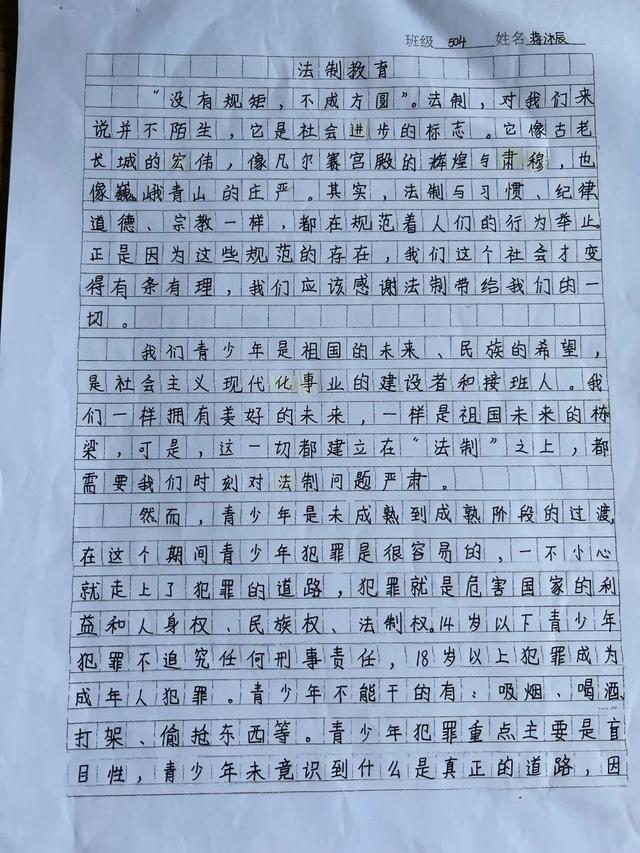 班级 504 姓名 蒋沐辰
法制教育
“没有规矩，不成方圆”。法制，对我们来
说并不陌生，它是社会进步的标志。它像古老
长城的宏伟，像凡尔赛宫殿的辉煌与肃穆，也
像巍峨青山的庄严。其实，法制与习惯、纪律
道德、宗教一样，都在规范着人们的行为举止。
正是因为这些规范的存在，我们这个社会才变
得有条有理，我们应该感谢法制带给我们的一
切。
我们青少年是祖国的未来、民族的希望，
是社会主义现代化事业的建设者和接班人。我
们一样拥有美好的未来，一样是祖国未来的栋
梁，可是，这一切都建立在“法制”之上，都
需要我们时刻对法制问题严肃。
然而，青少年是未成熟到成熟阶段的过渡，
在这个期间青少年犯罪是很容易的，一不小心
就走上了犯罪的道路，犯罪就是危害国家的利
益和人身权、民族权、法制权。14岁以下青少年
犯罪不追究任何刑事责任，18岁以上犯罪成为
成年人犯罪。青少年不能干的有：吸烟、喝酒、
打架、偷抢东西等。青少年犯罪重点主要是盲
目性，青少年未意识到什么是真正的道路，因